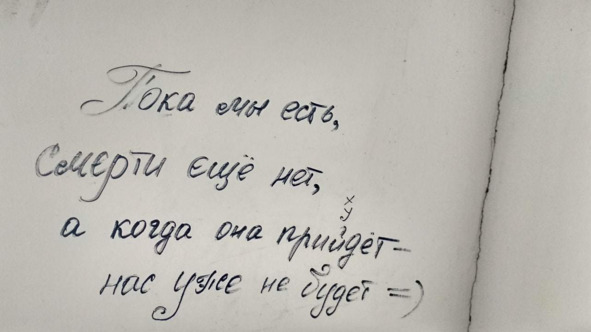 Пока мы есть,
Смерти ещё нет,
х
у
а когда она прийдёт –
нас уже не будет =)